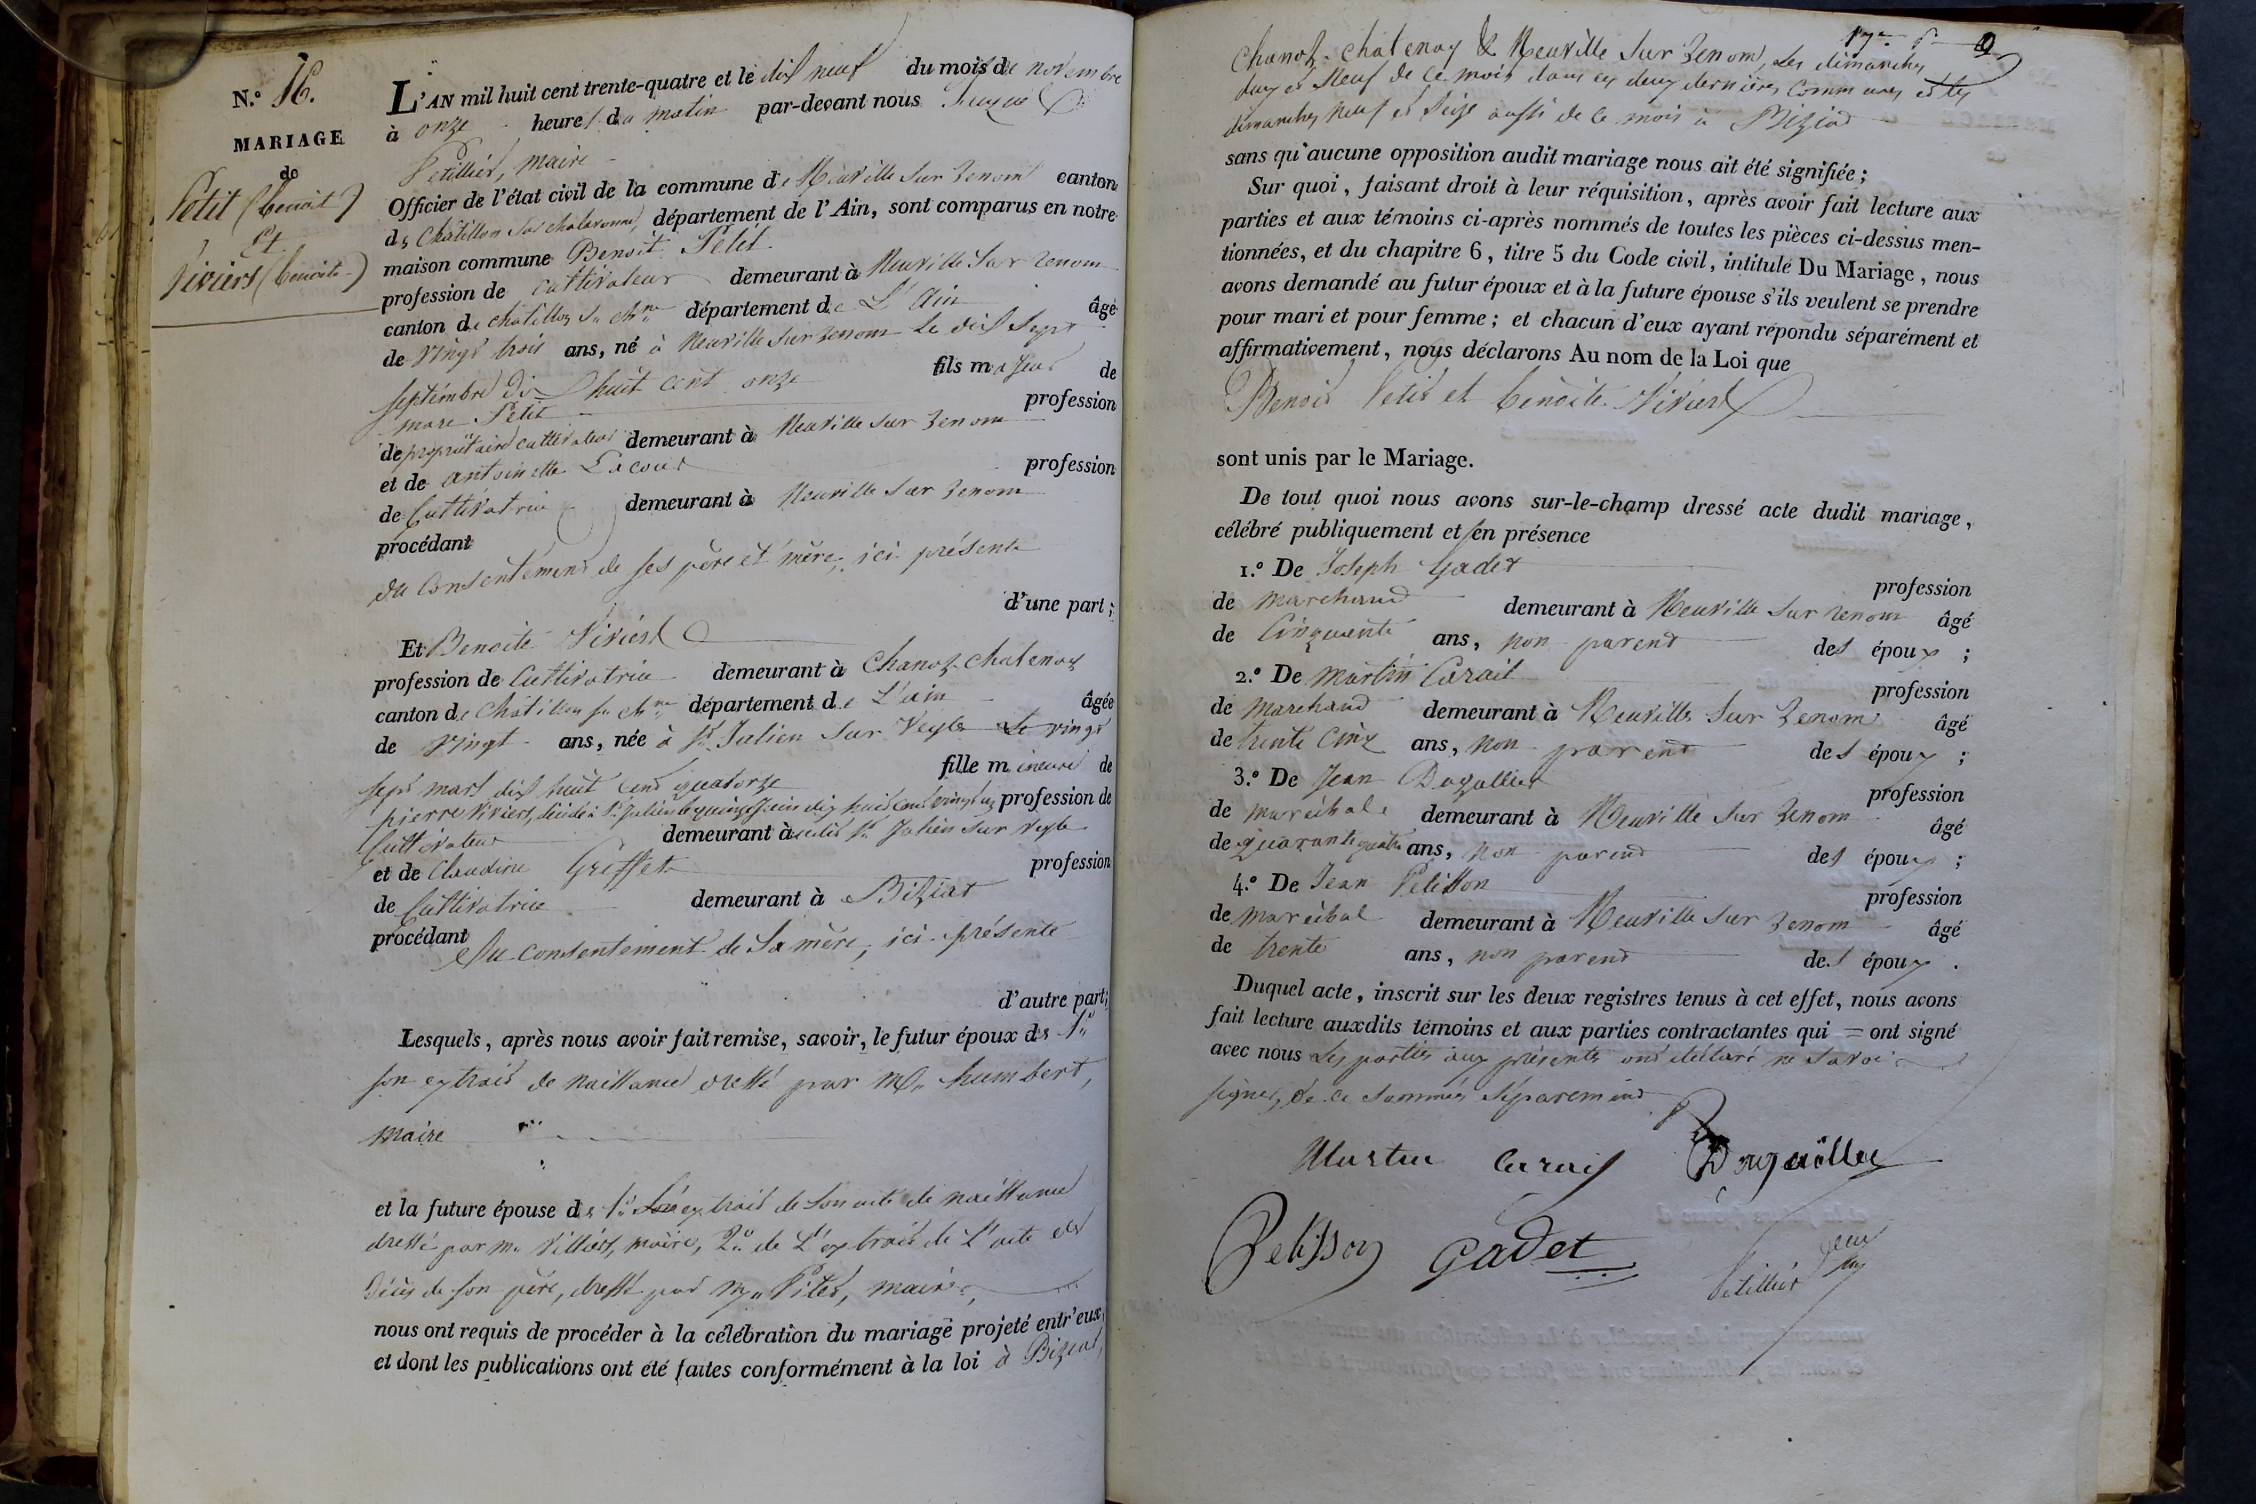 N.º 16.
MARIAGE
de
Petit (benoit)
Et
Viviers (benoite)
L'AN mil huit cent trente-quatre et le dix neuf du mois de novembre
à onze heures du matin par-devant nous
Petillier, maire
Officier de l'état civil de la commune de Neuville sur Renom canton
de Chatillon sur chalaronne, département de l'Ain, sont comparus en notre
maison commune Benoit Petit
profession de cultivateur demeurant à Neuville sur Renom
canton de chatillon sr chne département de L'ain âgé
de vingt trois ans, né à Neuville sur renom le dix sept
septembre dix huit cent onze fils majeur de
marc Petit profession
de propriétaire cultivateur demeurant à Neuville sur Renom
et de antoinette Lacour profession
de Cultivatrice demeurant à Neuville sur Renom
procédant
du consentement de ses père et mère, ici présents
d'une part ;
Et Benoite Viviers
profession de Cultivatrice demeurant à Chanoz-chatenay
canton de chatillon sr chne département de L'ain âgée
de vingt ans, née à st Julien sur Veyle Le vingt
sept mars dix huit cent quatorze fille mineure de
pierre Viviers, décédé à st Julien le quinze juin dix huit cent vingt profession de
Cultivateur demeurant à st Julien sur veyle
et de Claudine Greffet profession
de Cultivatrice demeurant à Biziat
procédant
Du consentement de Sa mère, ici présente
d'autre part;
Lesquels, après nous avoir fait remise, savoir, le futur époux de 1º
son extrait de naissance dressé par Mr humbert,
maire
et la future épouse de 1º extrait de son acte de naissance
dressé par mr Villiers, maire, 2º de L'extrait de L'acte de
décès de son père, dressé par mr Pites, maire,
nous ont requis de procéder à la célébration du mariage projeté entr'eux,
et dont les publications ont été faites conformément à la loi à Biziat,
Chanoz-chatenay & Neuville sur Renom, les dimanches
deux et Neuf de ce mois dans ces deux dernières communes et les
dimanches neuf et seize aussi de ce mois à Biziat
sans qu'aucune opposition audit mariage nous ait été signifiée ;
Sur quoi, faisant droit à leur réquisition, après avoir fait lecture aux
parties et aux témoins ci-après nommés de toutes les pièces ci-dessus men-
tionnées, et du chapitre 6, titre 5 du Code civil, intitulé Du Mariage, nous
avons demandé au futur époux et à la future épouse s'ils veulent se prendre
pour mari et pour femme ; et chacun d'eux ayant répondu séparément et
affirmativement, nous déclarons Au nom de la Loi que
Benoit Petit et benoite Viviers
sont unis par le Mariage.
De tout quoi nous avons sur-le-champ dressé acte dudit mariage,
célébré publiquement et en présence
1.º De Joseph Gadet
profession
de marchand demeurant à Neuville sur renom âgé
de Cinquante ans, non parent des époux ;
2.º De Martin Carait
profession
de marchand demeurant à Neuville sur Renom âgé
de trente cinq ans, non parent des époux ;
3.º De Jean Dagallier
profession
de maréchal demeurant à Neuville sur Renom âgé
de quarante quatre ans, non parent des époux ;
4.º De Jean Pelisson
profession
de maréchal demeurant à Neuville sur Renom âgé
de trente ans, non parent des époux .
Duquel acte, inscrit sur les deux registres tenus à cet effet, nous avons
fait lecture auxdits témoins et aux parties contractantes qui = ont signé
avec nous les parties aux présentes ont déclaré ne savoir
signer, de ce sommés séparément
Martin Carait
Pelisson Gadet
Petillier